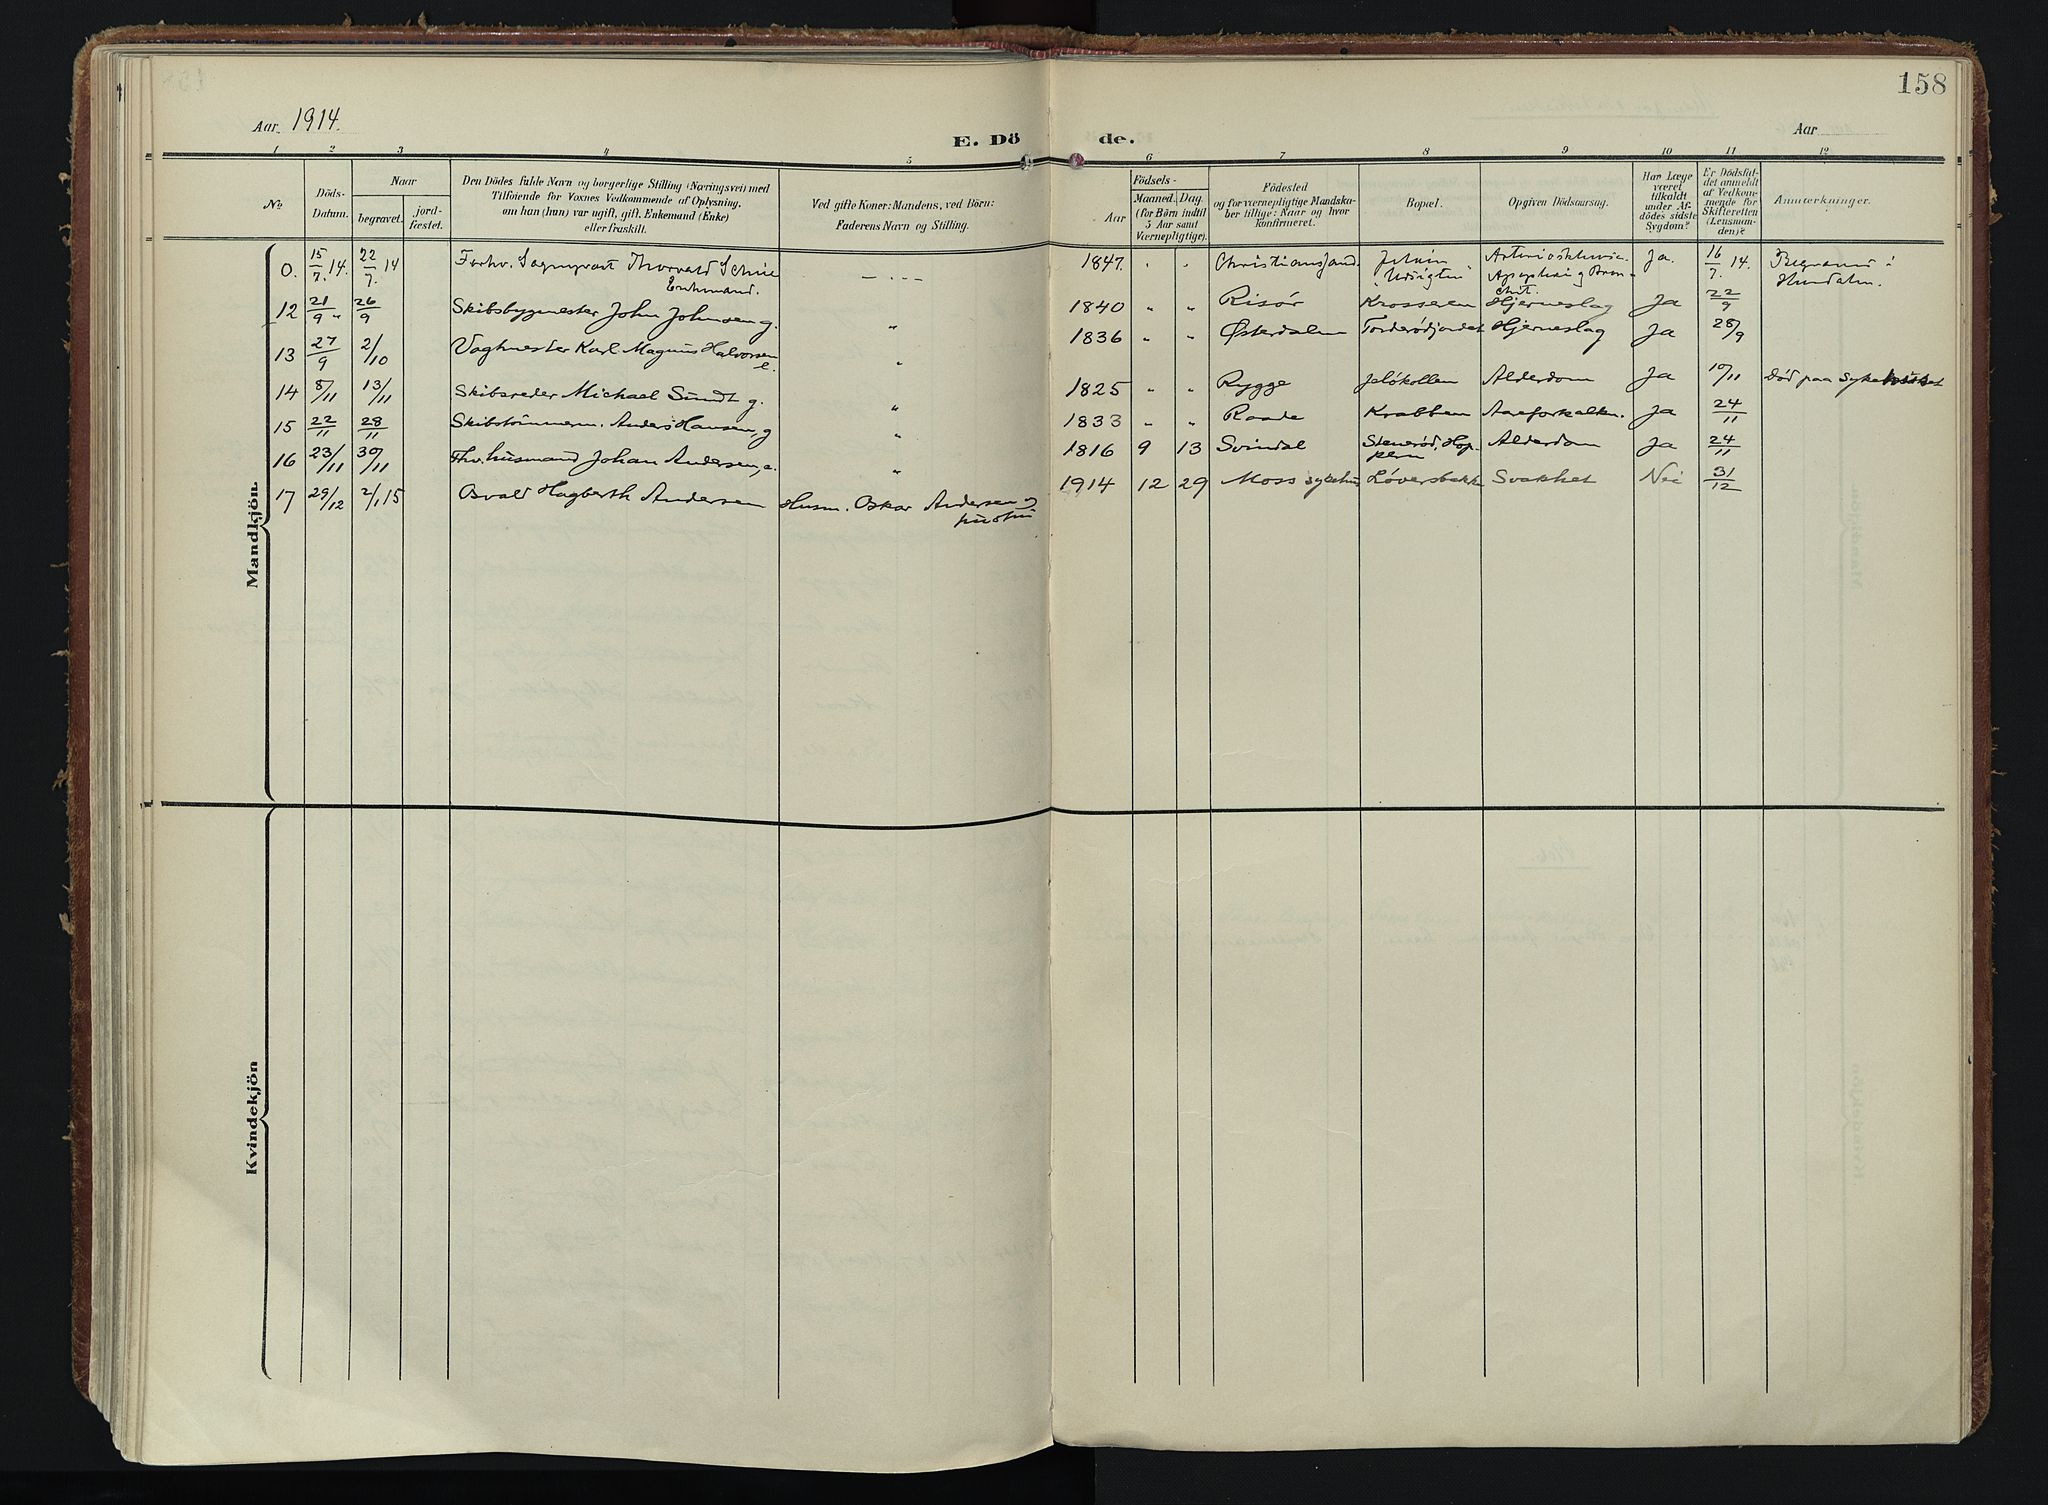 158
Aar 1914.
E. Döde.
Aar
1 2 3 4 5 6 7 8 9 10 11 12
No
Döds-
Datum.
Naar
begravet.
jord-
fæstet.
Den Dödes fulde Navn og borgerlige Stilling (Næringsvei) med
Tilföiende for Voxnes Vedkommende af Oplysning,
om han (hun) var ugift, gift, Enkemand (Enke)
eller fraskilt.
Ved gifte Koner: Mandens, ved Börn:
Faderens Navn og Stilling.
Födsels-
Aar
Maaned. Dag.
(for Börn indtil
5 Aar samt
Værnepligtige).
Födested
og for værnepligtige Mandska-
ber tillige: Naar og hvor
konfirmeret.
Bopæl.
Opgiven Dödsaarsag.
Har Læge
været
tilkaldt
under Af-
dödes sidste
Sygdom?
Er Dödsfal-
det anmeldt
af Vedkom-
mende for
Skifteretten
(Lensman-
den)?
Anmærkninger.
Mandkjön
0. 15/7. 14. 22/7. 14 Forhv. Sogneprest Thorvald Schiie Enkemand. — . - - 1847. " " Christianssand. Jeløen "Udsigten" Apoplexi og Bron-chit. Ja. 16/7. 14. Begravet i Hundalm.
12 21/9 " 26/9 Skibsbygmester John Johnsen g. " 1840 " " Risør Krosseren Hjerneslag Ja 22/9
13 27/9 2/10 Vagtmester Karl Magnus Halvorsen e. " 1836 " " Østerdalen Torderødjordet Hjerneslag Ja 28/9
14 8/11 13/11 Skibsreder Michael Sundt g. " 1825 " " Rygge Jeløkollen Alderdom Ja 10/11 Død paa Sykehuset
15 22/11 28/11 Skibstømmerm. Anders Hansen, g " 1833 " " Raade Krabben Aareforkalkn. Ja 24/11
16 23/11 30/11 Fhv. husmand Johan Andersen, e. " 1816 9 13 Svindal Stenerød, Hop-pern Alderdom Ja 24/11
17 29/12 2/1 15 Osvald Hagberth Andersen Husm. Oskar Andersen og hustru 1914 12 29 Moss sykehus Løversbakke Svakhet Nei 31/12
Kvindekjön